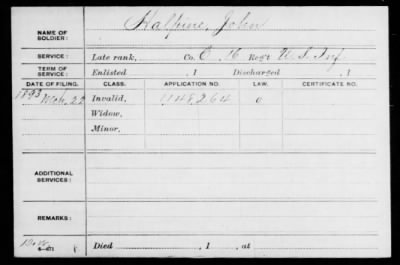 NAME OF SOLDIER: Halpine, John
SERVICE: Late rank, Co. E 16 Reg't U.S. Inf.
TERM OF SERVICE: Enlisted , 1 Discharged , 1
DATE OF FILING. CLASS. APPLICATION NO. LAW. CERTIFICATE NO.
1893 Mch. 22 Invalid, 1148264
Widow,
Minor,
ADDITIONAL SERVICES:
REMARKS:
Died , 1 , at